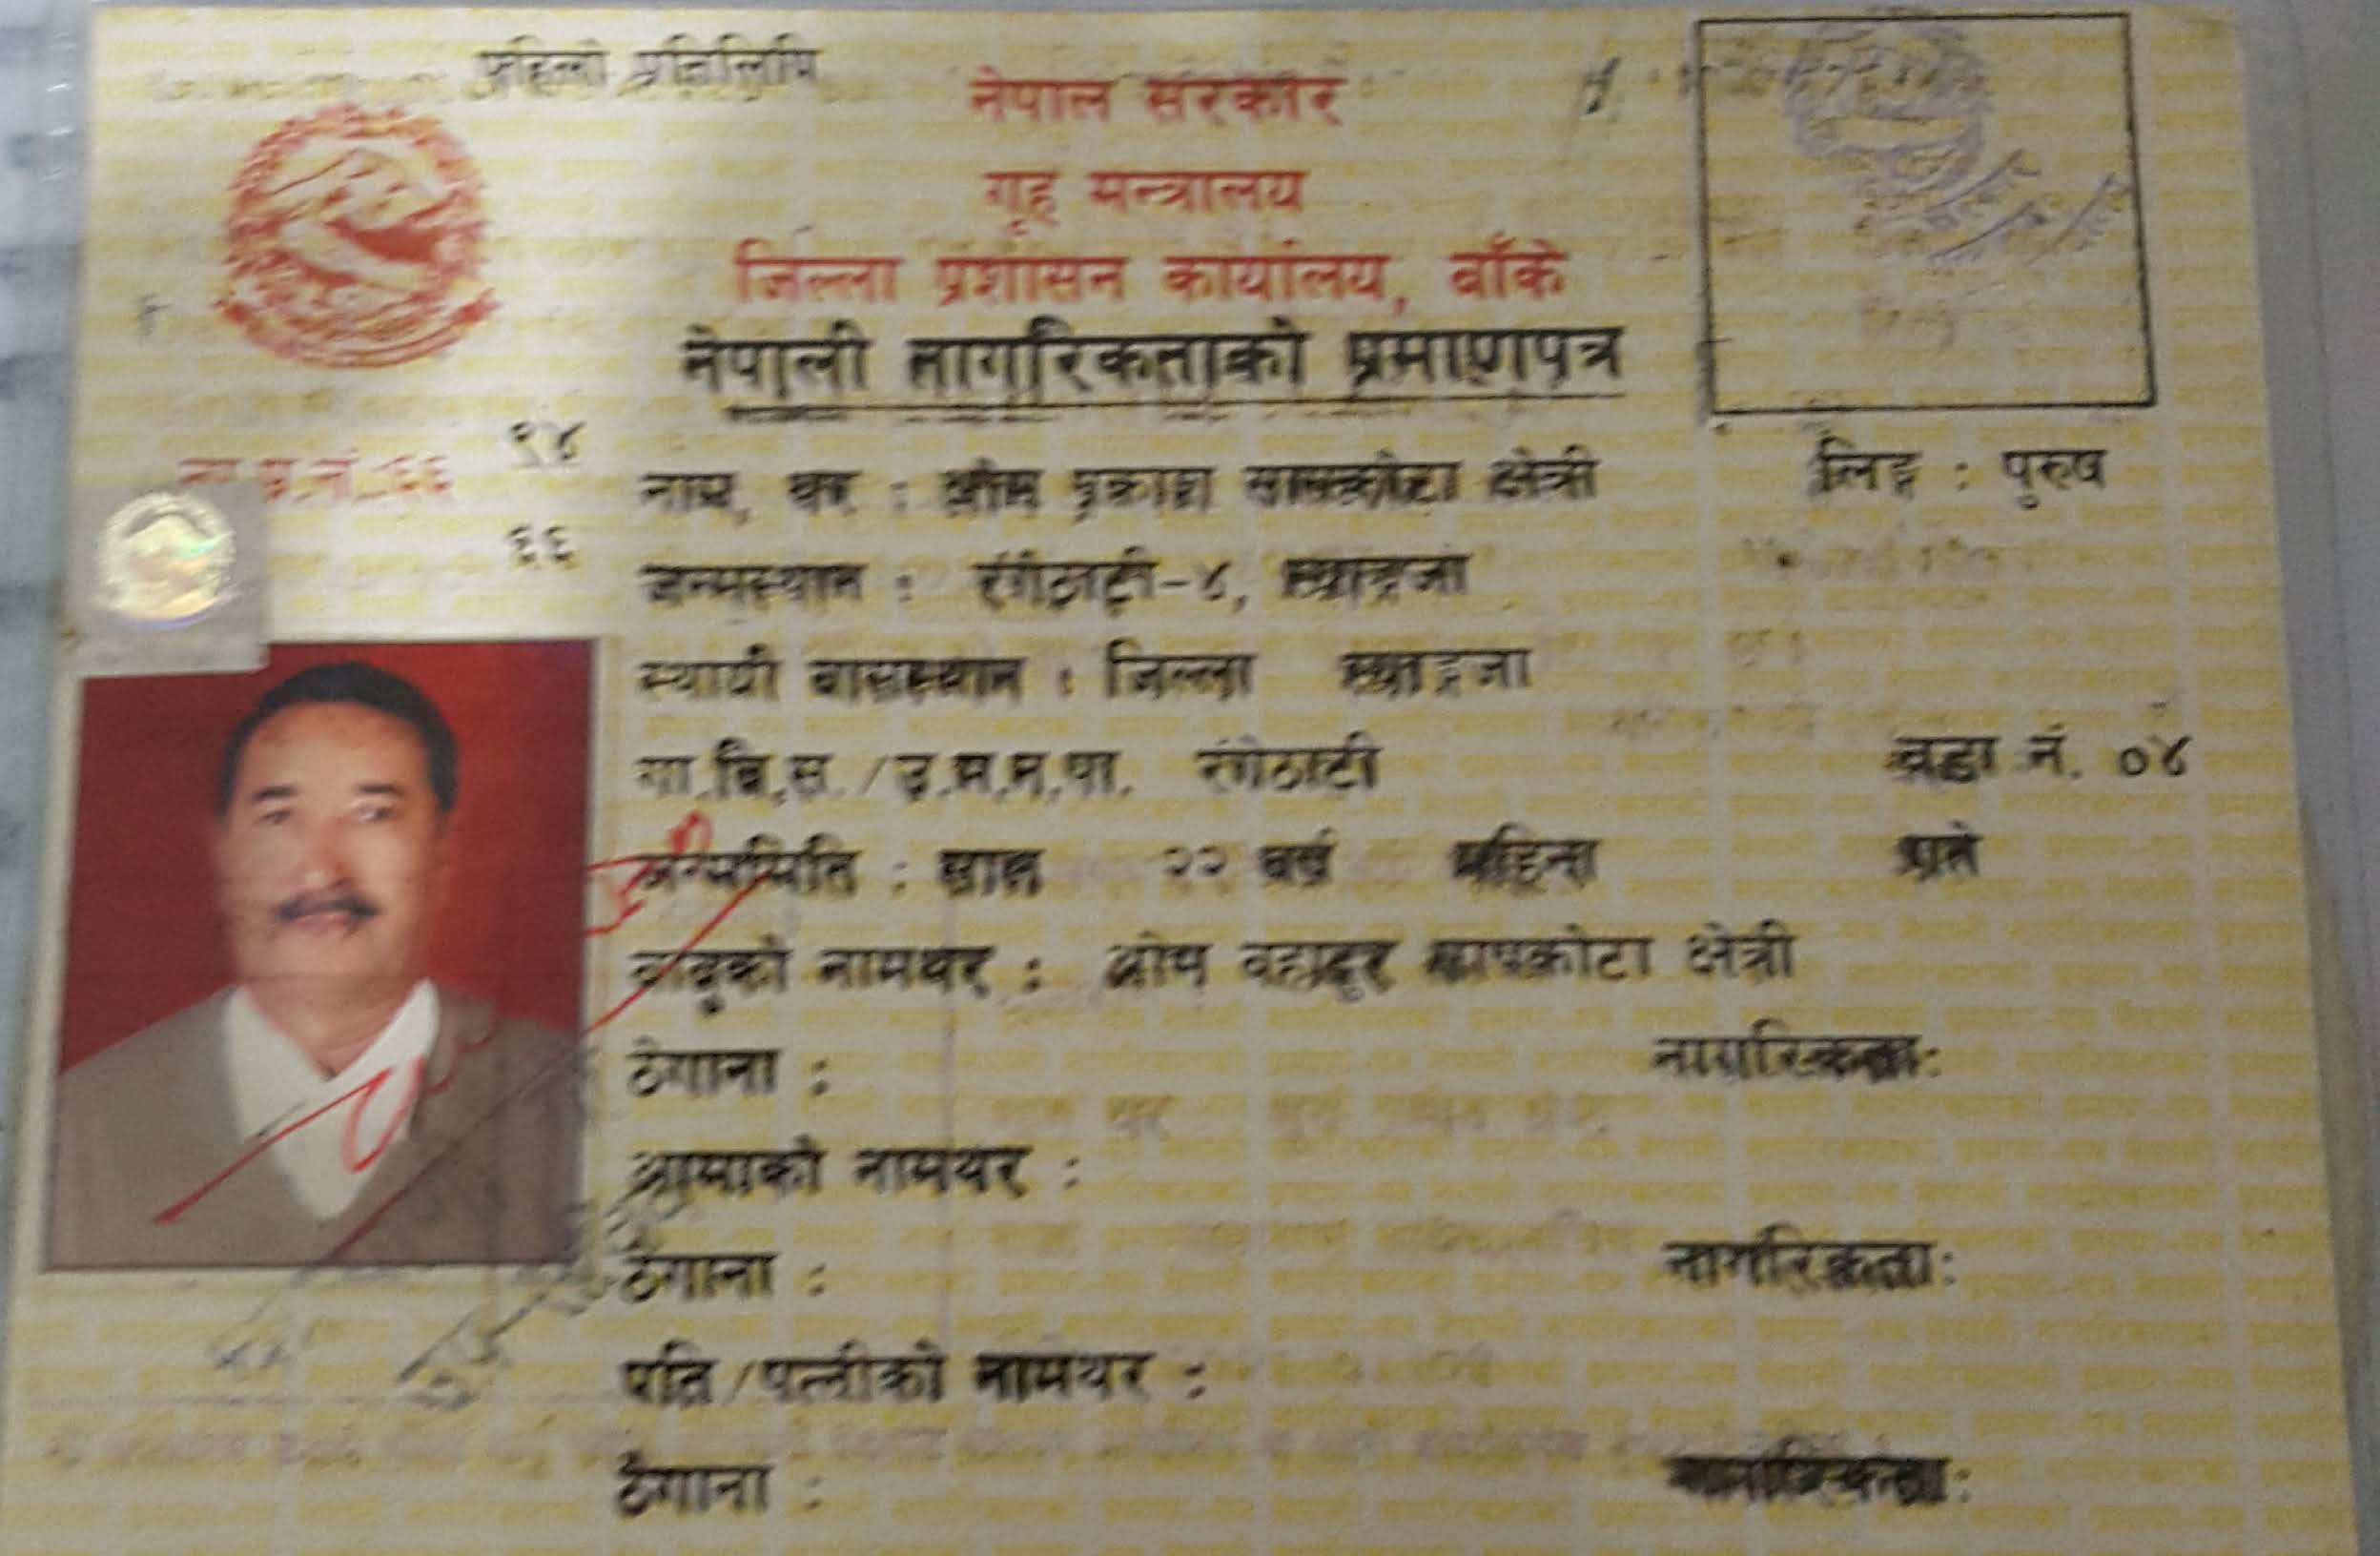 पहिलो प्रतिलिपि
नेपाल सरकार
गृह मन्त्रालय
जिल्ला प्रशासन कार्यालय, बाँके
नेपाली नागरिकताको प्रमाणपत्र
ना.प्र.नं.:६६
१४
६६
नाम, थर : ओम प्रकाश सापकोटा क्षेत्री
लिङ्ग : पुरुष
जन्मस्थान : रंगेठाटी-४, स्याङ्गजा
स्थायी बासस्थान : जिल्ला स्याङ्गजा
गा.बि.स./उ.म.न.पा. रंगेठाटी
वडा नं. ०४
जन्ममिति : साल २२ वर्ष महिना
बाबुको नामथर : ओम वहादुर सापकोटा क्षेत्री
ठेगाना :
नागरिकता:
आमाको नामथर :
ठेगाना :
नागरिकता:
पति/पत्नीको नामथर :
ठेगाना :
नागरिकता: